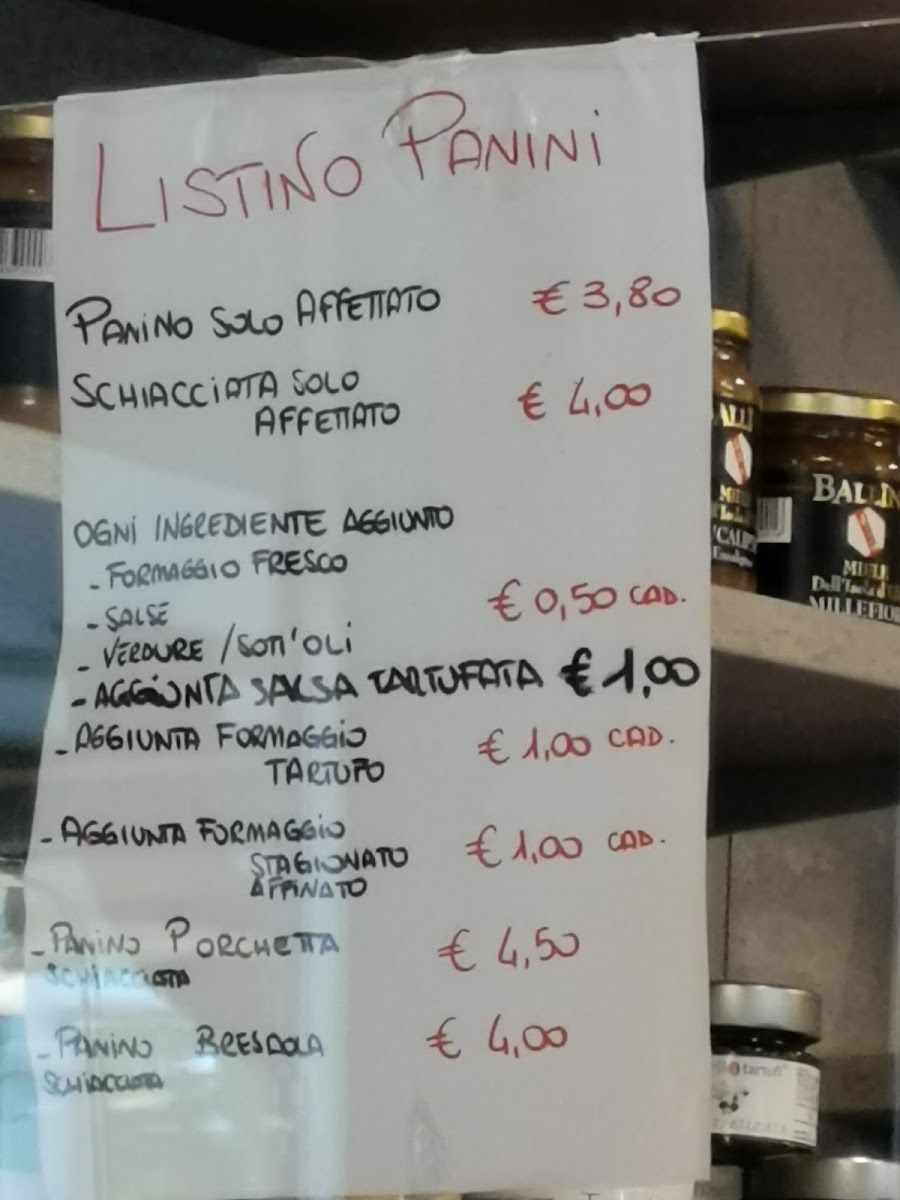 LISTINO PANINI
PANINO SOLO AFFETTATO € 3,80
SCHIACCIATA SOLO
AFFETTATO € 4,00
OGNI INGREDIENTE AGGIUNTO
- FORMAGGIO FRESCO
- SALSE € 0,50 CAD.
- VERDURE / SOTT'OLI
- AGGIUNTA SALSA TARTUFATA € 1,00
- AGGIUNTA FORMAGGIO
TARTUFO € 1,00 CAD.
- AGGIUNTA FORMAGGIO
STAGIONATO € 1,00 CAD.
AFFINATO
- PANINO PORCHETTA € 4,50
SCHIACCIATA
- PANINO BRESAOLA € 4,00
SCHIACCIATA
MILLEFIO
tartufi